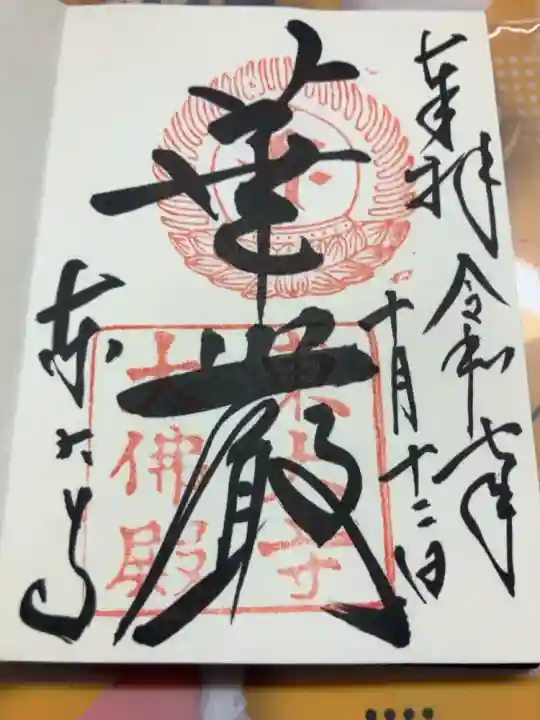 奉拝
令和七年
十月十二日
華厳
東大寺
大佛殿
東大寺